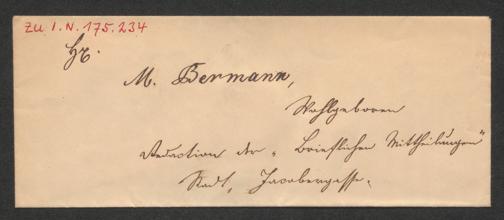 Zu I.N. 175.234
Hr.
M. Bermann,
Wohlgeboren
Redaction der „Brieflichen Mittheilungen"
Stadt, Jacobergasse.